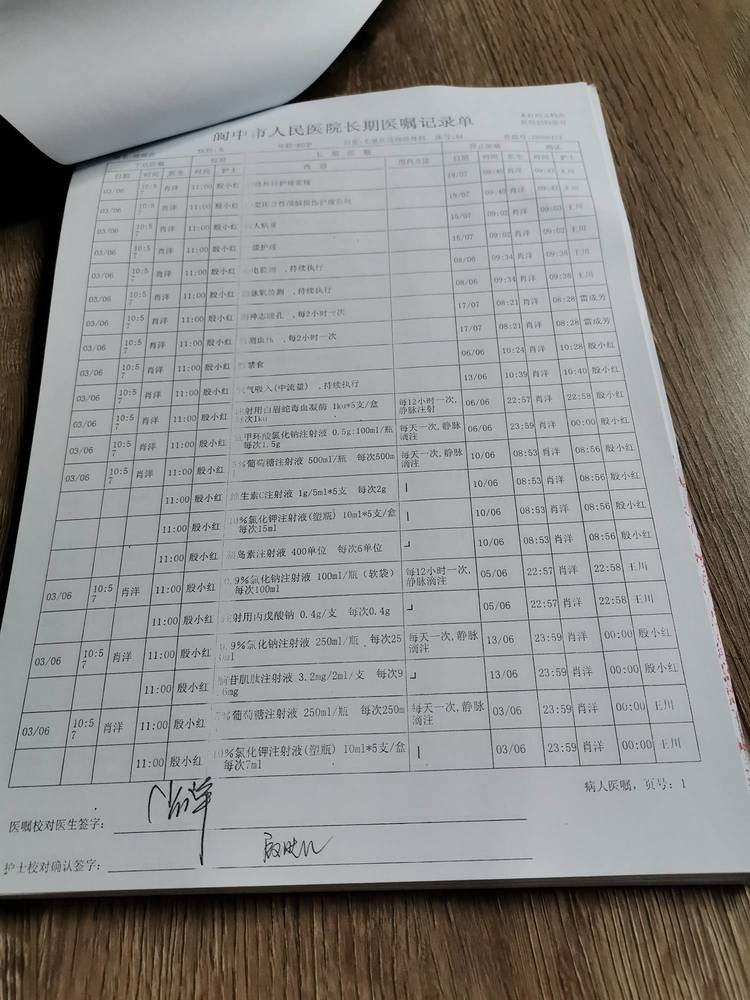 阆中市人民医院长期医嘱记录单
长期医嘱 停止医嘱
日期 时间 医生 时间 护士 内容 用药方法 日期 时间 医生 时间 护士
03/06 10:57 肖洋 11:00 殷小红 18/07 肖洋 王川
03/06 10:57 肖洋 11:00 殷小红 肖洋 王川
03/06 10:57 肖洋 11:00 殷小红 病重 15/07 09:02 肖洋 09:03 王川
03/06 10:57 肖洋 11:00 殷小红 级护理 15/07 09:02 肖洋 王川
03/06 10:57 肖洋 11:00 殷小红 电监测 ,持续执行 08/06 09:34 肖洋 09:38 王川
03/06 10:57 肖洋 11:00 殷小红 ,持续执行 08/06 09:34 肖洋 09:38 王川
03/06 10:57 肖洋 11:00 殷小红 神志瞳孔 ,每2小时一次 17/07 08:21 肖洋 08:28 雷成芳
03/06 10:57 肖洋 11:00 殷小红 测血压 ,每2小时一次 17/07 08:21 肖洋 08:28 雷成芳
03/06 10:57 肖洋 11:00 殷小红 禁食 06/06 10:24 肖洋 10:28 殷小红
03/06 10:57 肖洋 11:00 殷小红 气吸入(中流量) ,持续执行 13/06 10:39 肖洋 10:40 殷小红
03/06 10:57 肖洋 11:00 殷小红 注射用白眉蛇毒血凝酶 1ku*5支/盒 每次1ku 每12小时一次,静脉注射 06/06 22:57 肖洋 22:58 殷小红
03/06 10:57 肖洋 11:00 殷小红 甲环酸氯化钠注射液 0.5g:100ml/瓶 每次1.5g 每天一次,静脉滴注 06/06 23:59 肖洋 00:00 殷小红
03/06 10:57 肖洋 11:00 殷小红 %葡萄糖注射液 500ml/瓶 每次500m 每天一次,静脉滴注 10/06 08:53 肖洋 08:56 殷小红
11:00 殷小红 维生素C注射液 1g/5ml*5支 每次2g 10/06 08:53 肖洋 08:56 殷小红
11:00 殷小红 10%氯化钾注射液(塑瓶) 10ml*5支/盒 每次15ml 10/06 08:53 肖洋 08:56 殷小红
11:00 殷小红 胰岛素注射液 400单位 每次6单位 10/06 08:53 肖洋 08:56 殷小红
03/06 10:57 肖洋 11:00 殷小红 0.9%氯化钠注射液 100ml/瓶(软袋) 每次100ml 每12小时一次,静脉滴注 05/06 22:57 肖洋 22:58 王川
11:00 殷小红 注射用丙戊酸钠 0.4g/支 每次0.4g 05/06 22:57 肖洋 22:58 王川
03/06 10:57 肖洋 11:00 殷小红 0.9%氯化钠注射液 250ml/瓶 每次250ml 每天一次,静脉滴注 13/06 23:59 肖洋 00:00 殷小红
11:00 殷小红 苷肌肽注射液 3.2mg/2ml/支 每次9.6mg 13/06 23:59 肖洋 00:00 殷小红
03/06 10:57 肖洋 11:00 殷小红 %葡萄糖注射液 250ml/瓶 每次250m 每天一次,静脉滴注 03/06 23:59 肖洋 00:00 王川
11:00 殷小红 10%氯化钾注射液(塑瓶) 10ml*5支/盒 每次7ml 03/06 23:59 肖洋 00:00 王川
病人医嘱, 页号: 1
医嘱校对医生签字: 肖洋
护士校对确认签字: